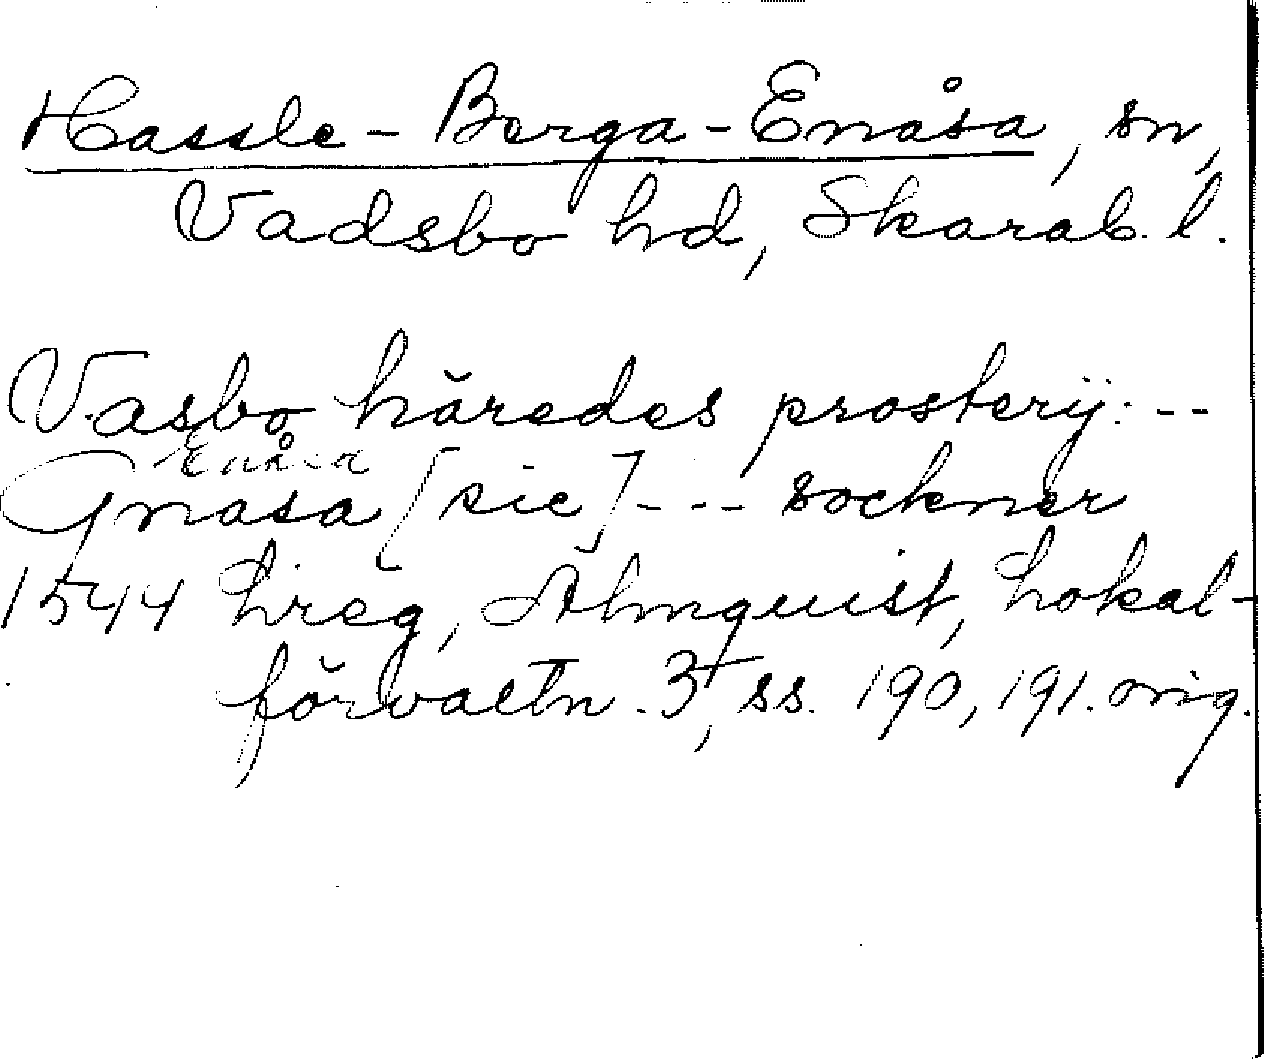 Hassle-Berga-Enåsa, sn,
Vadsbo hd, Skarab. l.
Vasbo häredes prosterÿ: --
Enåsa
Gnasa [sic] --- sockner
1544 hreg, Almquist, Lokal-
förvaltn. 3, ss. 190, 191. orig.